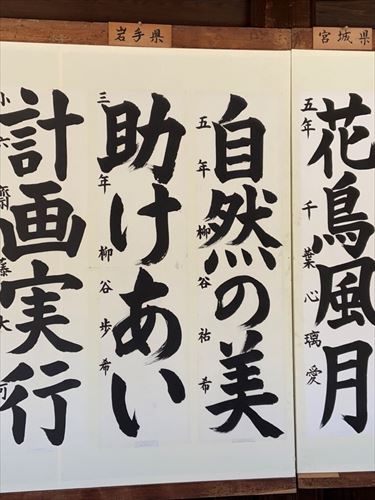 宮城県
花鳥風月
五年 千葉心璃愛
岩手県
自然の美
五年 柳谷祐希
助けあい
三年 柳谷歩希
計画実行
小六